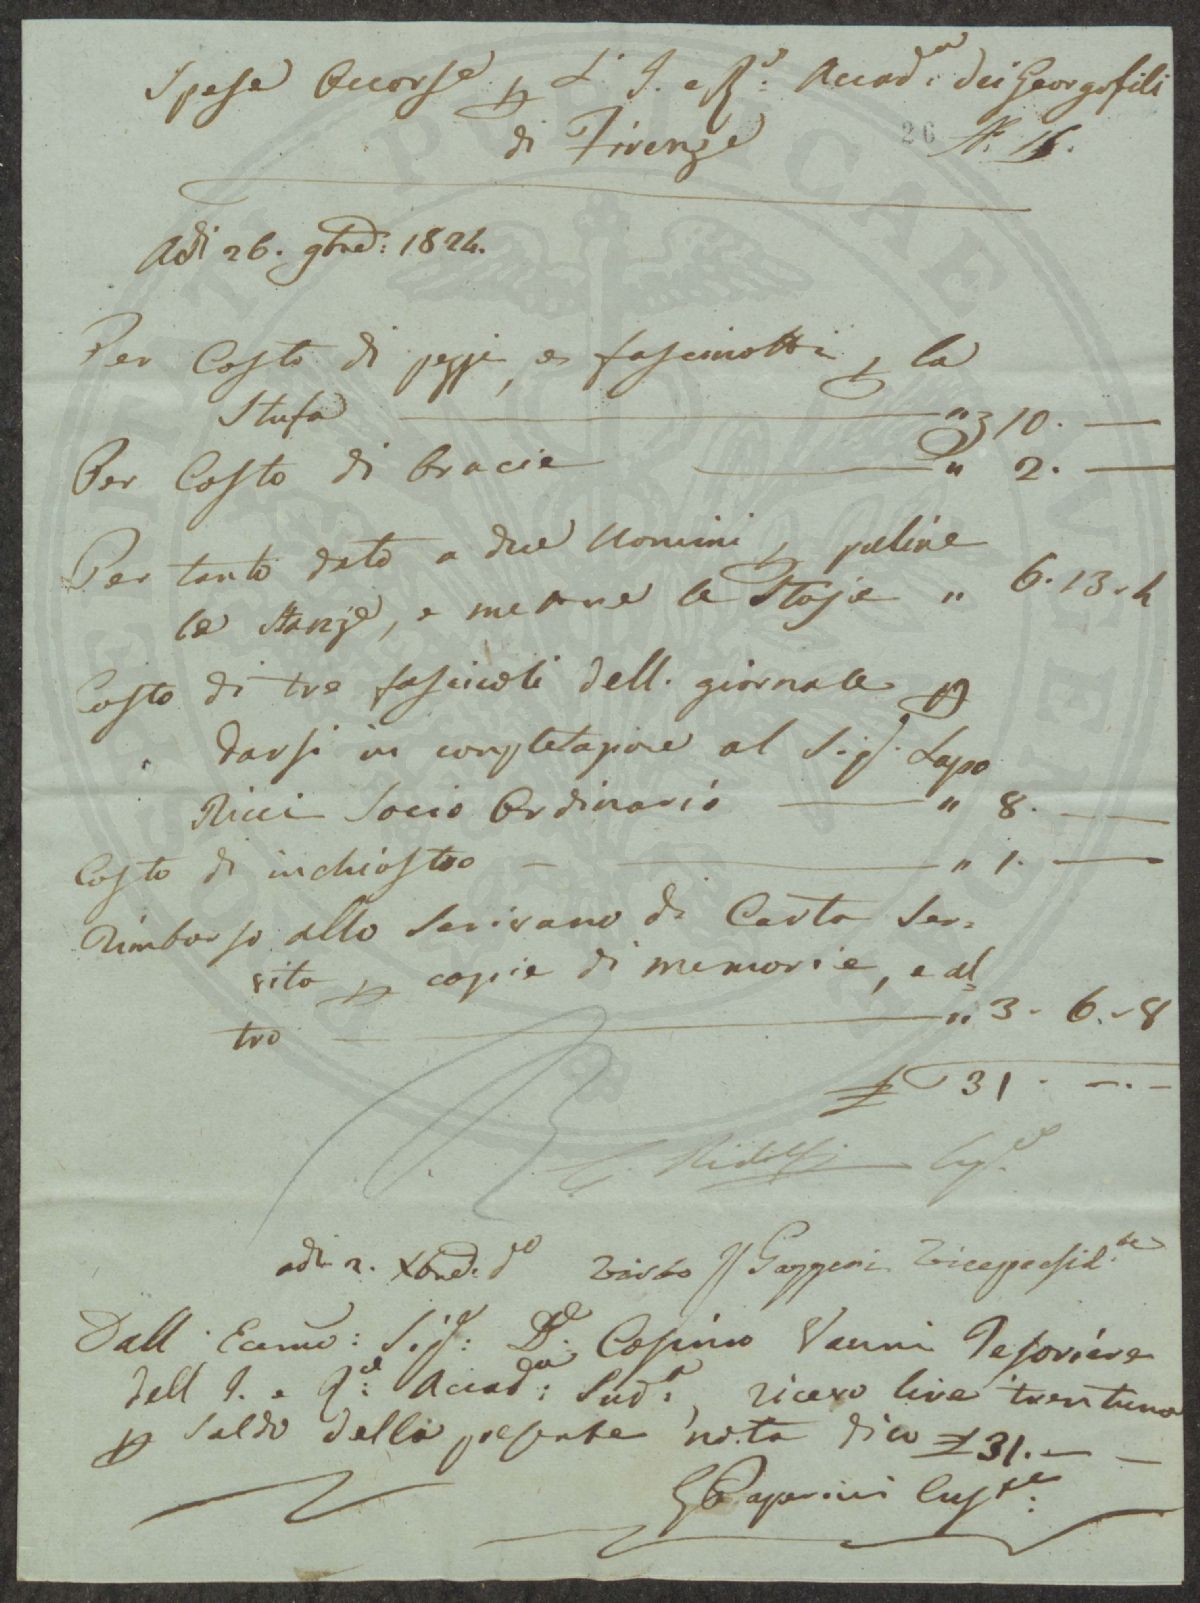 Spese Occorse p L' I. e R.: Accad.a dei Georgofili
di Firenze
26 N.o 16.
Adì 26. 9bre: 1824.
Per Costo di pezzi, e fascinotti p la
Stufa " 10. —
Per Costo di bracie " 2. —
Per tanto dato a due Uomini p pulire
le stanze, e mettere le Stoje " 6. 13. 4
Costo di tre fascicoli dell. giornale p
darsi in completazione al Sig.r Lapo
Ricci Socio Ordinario " 8. —
Costo di inchiostro — " 1. —
Rimborso allo Scrivano di Carta ser=
vita p copie di memorie, e al=
tro " 3. 6. 8
£ 31. —. —
C. Ridolfi
adì 2. Xbre. d.o Visto Gazzeri Vicepresid.te
Dall' Ecemo: Sig.r: D.e: Cosimo Vanni Tesoriere
dell I. e R.e: Accad.a: Sud.a, ricevo lire trentuna
p saldo della presente nota dico £ 31. — —
G Paparini Cus.de:
PUBLICAE